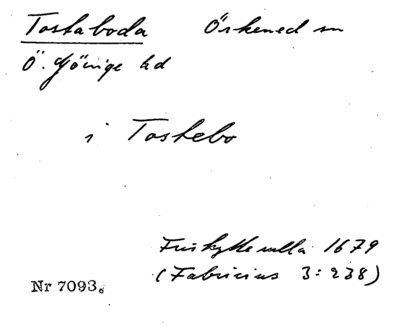 Tostaboda Örkened sn
Ö. Göinge hd
i Tostebo
Friskytterulla 1679
(Fabricius 3:238)
Nr 7093.